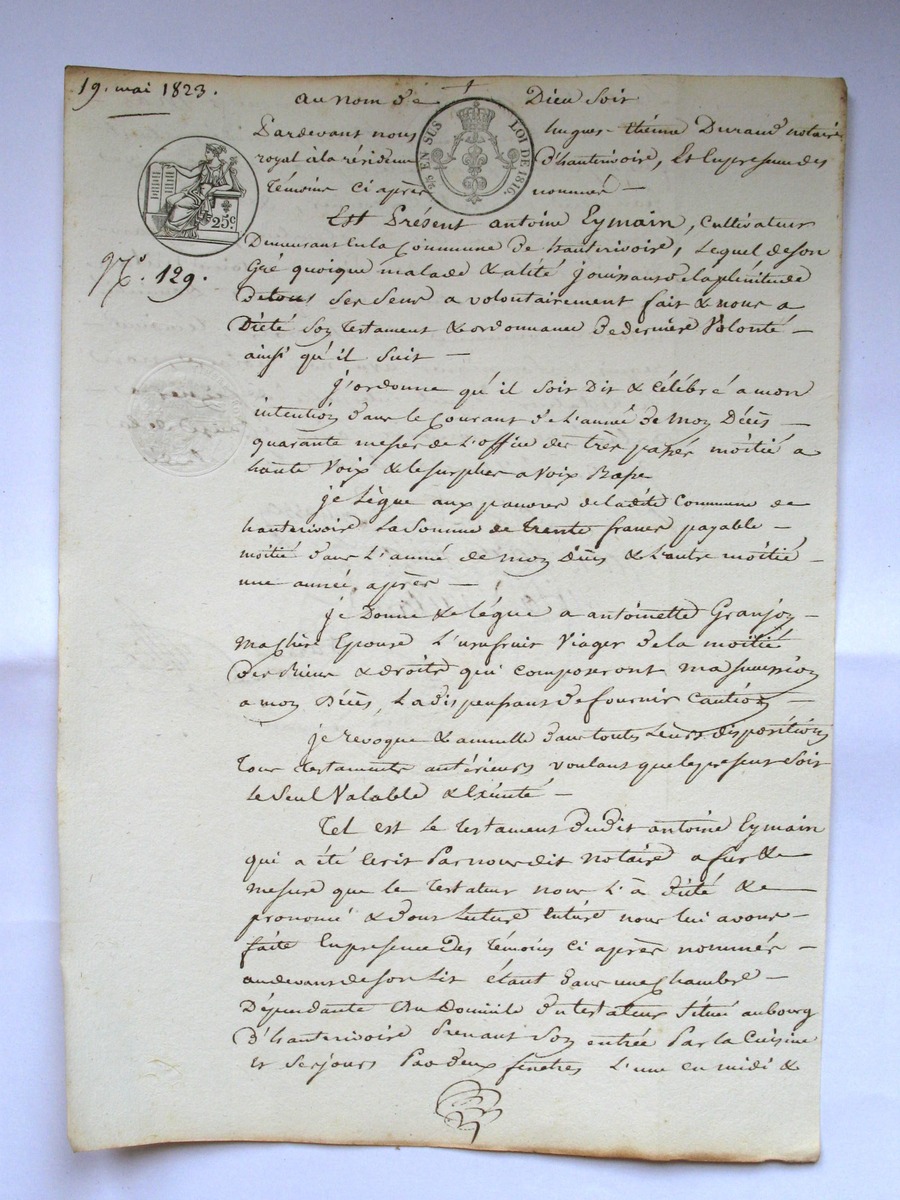 19. mai 1823.
au nom de Dieu soit
Pardevant nous hugues-théime Durand notaire
royal à la résidence d'hauterivoire, Et En presence des
témoins ci après nommés —
25 EN SUS LOI DE 1816.
25c
N.° 129.
Est Présent antoine Eymain, Cultivateur
Demeurant En la Commune de hauterivoire, Lequel de son
Gré quoique malade & alité jouissant de la plénitude
De tous ses sens a volontairement fait & nous a
Dicté son testament & ordonnance de derniere Volonté —
ainsi qu'il suit —
j'ordonne qu'il soit Dit & Célébré a mon
intention dans le Courant de L'année de mon Décès —
quarante messes de L'office des trepassés moitié a
haute Voix & le surplus a Voix Basse
je Lègue aux pauvres de ladite Commune de
hauterivoire La somme de trente francs payable —
moitié dans L'année de mon Décès & L'autre moitié —
une année après —
je Donne & Lègue a antoinette Granjon —
Ma Chère Epouse L'usufruit Viager de la moitié
Des Biens & droits qui composeront ma succession
a mon Décès, La dispensant de fournir Caution —
je revoque & annulle dans toutes Leurs dispositions
tous testaments antérieurs voulant que le présent soit
le seul Valable & Exécuté —
Tel est le testament dudit antoine Eymain
qui a été Ecrit Par nous dit notaire a fur & a
mesure que le testateur nous L'à dicté &
prononcé & dont Lecture Entière nous lui avons —
faite En presence Des témoins ci après nommés —
au devant de son Lit étant dans une Chambre —
Dépendante du Domicile du testateur situé au bourg
D'hauterivoire Prenant son entrée Par la Cuisine
et ses jours Par deux fenêtres L'une en midi &